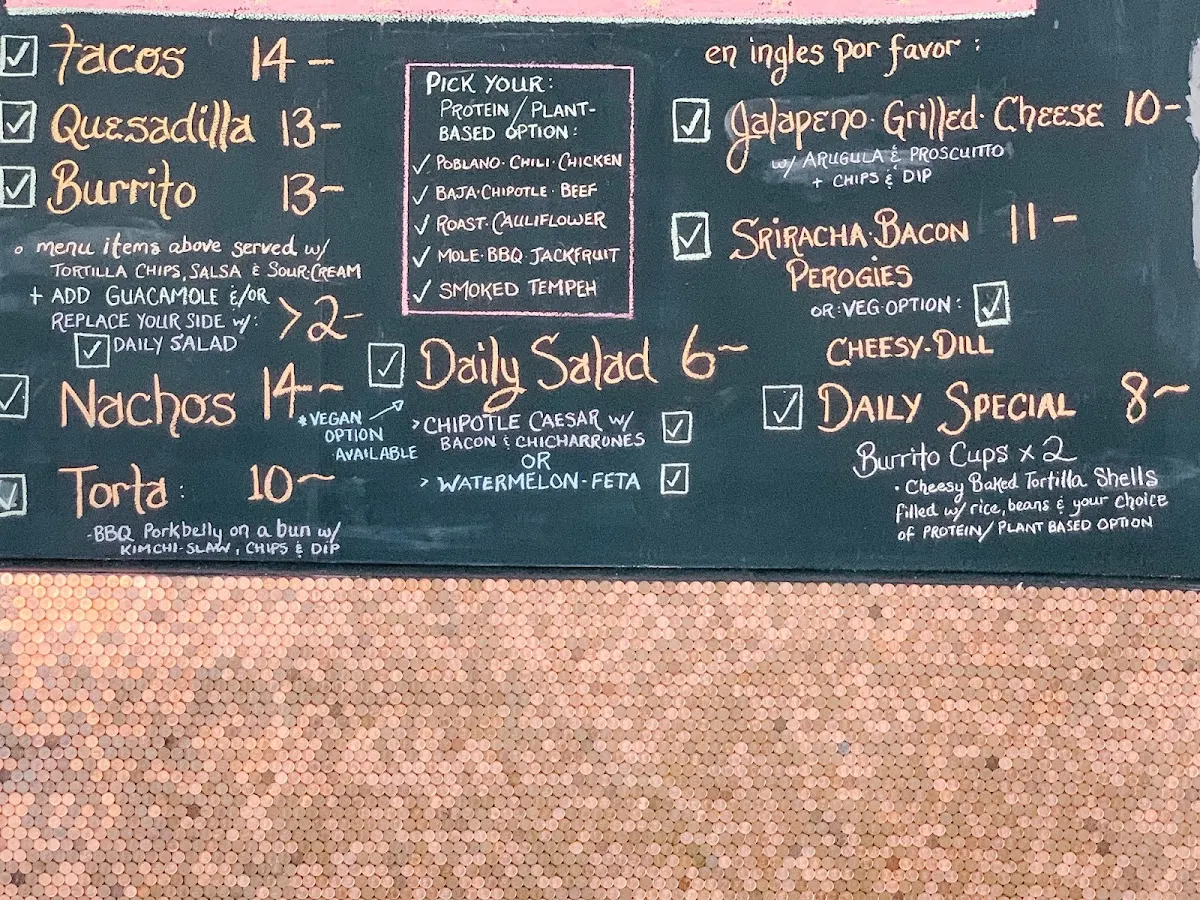 Tacos 14-
Quesadilla 13-
Burrito 13-
menu items above served w/
TORTILLA CHIPS, SALSA & SOUR-CREAM
+ ADD GUACAMOLE &/OR
REPLACE YOUR SIDE w/: >2-
DAILY SALAD
Nachos 14~
*VEGAN
OPTION
AVAILABLE
Torta: 10~
-BBQ Porkbelly on a bun w/
KIMCHI-SLAW, CHIPS & DIP
PICK YOUR:
PROTEIN/PLANT-
BASED OPTION:
✓ POBLANO·CHILI·CHICKEN
✓ BAJA·CHIPOTLE·BEEF
✓ ROAST·CAULIFLOWER
✓ MOLE·BBQ·JACKFRUIT
✓ SMOKED TEMPEH
Daily Salad 6~
>CHIPOTLE CAESAR w/
BACON & CHICHARRONES
OR
> WATERMELON-FETA
en ingles por favor :
Jalapeno·Grilled·Cheese 10-
w/ ARUGULA & PROSCUITTO
+ CHIPS & DIP
SRIRACHA·BACON 11-
PEROGIES
OR:VEG·OPTION:
CHEESY-DILL
DAILY SPECIAL 8~
Burrito Cups x 2
· Cheesy Baked Tortilla Shells
filled w/ rice, beans & your choice
of PROTEIN/PLANT BASED OPTION